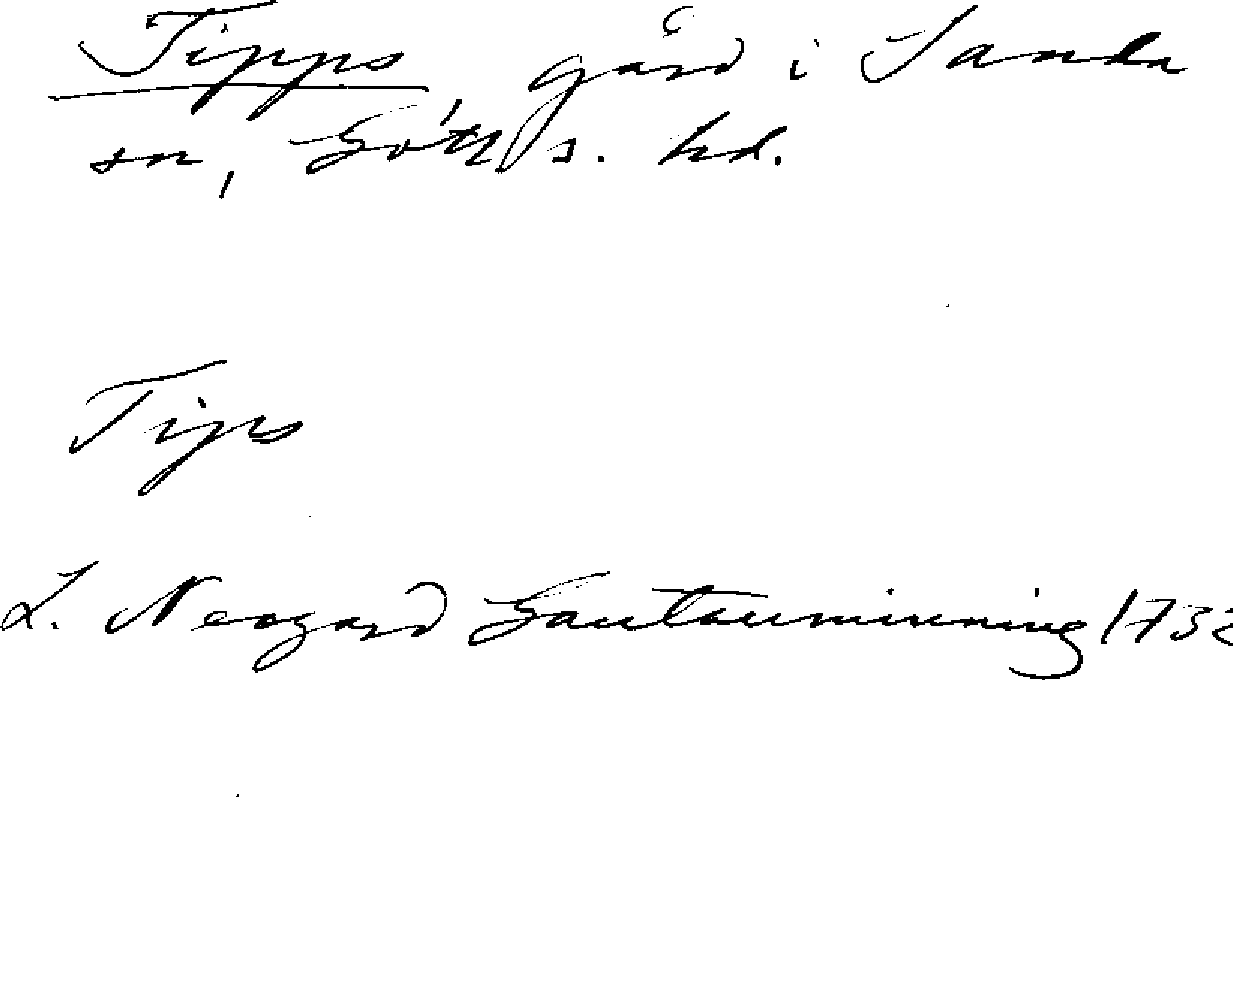 Tipps, gård i Sanda
sn, Gotl. s. hd.
Tips
L. Neogard Gautauminning 1732